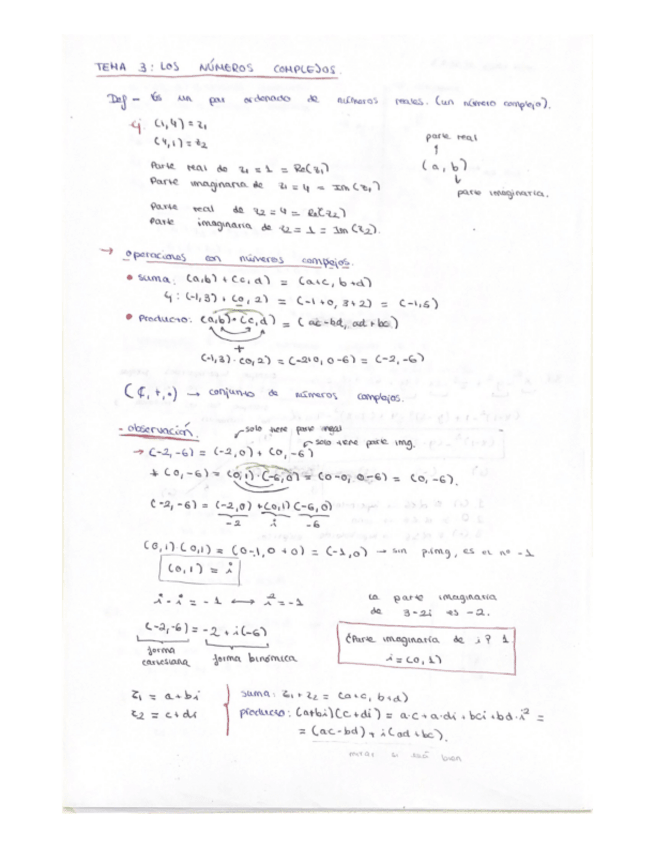 TEMA 3: LOS NÚMEROS COMPLEJOS.
Def - Es un par ordenado de números reales. (un número complejo).
ej: (1,4) = z1
(4,1) = z2
Parte real de z1 = 1 = Re(z1)
Parte imaginaria de z1 = 4 = Im(z1)
Parte real de z2 = 4 = Re(z2)
Parte imaginaria de z2 = 1 = Im(z2).
parte real
↑
(a, b)
↓
parte imaginaria.
→ operaciones con números complejos.
• suma: (a,b) + (c,d) = (a+c, b+d)
ej: (-1,3) + (0,2) = (-1+0, 3+2) = (-1,5)
• Producto: (a,b)·(c,d) = (ac-bd, ad+bc)
+
(-1,3)·(0,2) = (-2+0, 0-6) = (-2,-6)
(ℂ, +, ·) → conjunto de números complejos.
- observación.
solo tiene parte real
solo tiene parte img.
→ (-2,-6) = (-2,0) + (0,-6)
* (0,-6) = (0,1)·(-6,0) = (0-0, 0-6) = (0,-6).
(-2,-6) = (-2,0) + (0,1)(-6,0)
-2 i -6
(0,1)(0,1) = (0-1, 0+0) = (-1,0) → sin p.img, es el nº -1
(0,1) = i
i·i = -1 ⟷ i² = -1
La parte imaginaria
de 3-2i es -2.
(-2,-6) = -2 + i(-6)
forma
cartesiana
forma binómica
¿Parte imaginaria de i? 1
i = (0,1)
z1 = a+bi
z2 = c+di
suma: z1 + z2 = (a+c, b+d)
producto: (a+bi)(c+di) = a·c + a·di + bci + bd·i² =
= (ac-bd) + i(ad+bc).
mirar si está bien